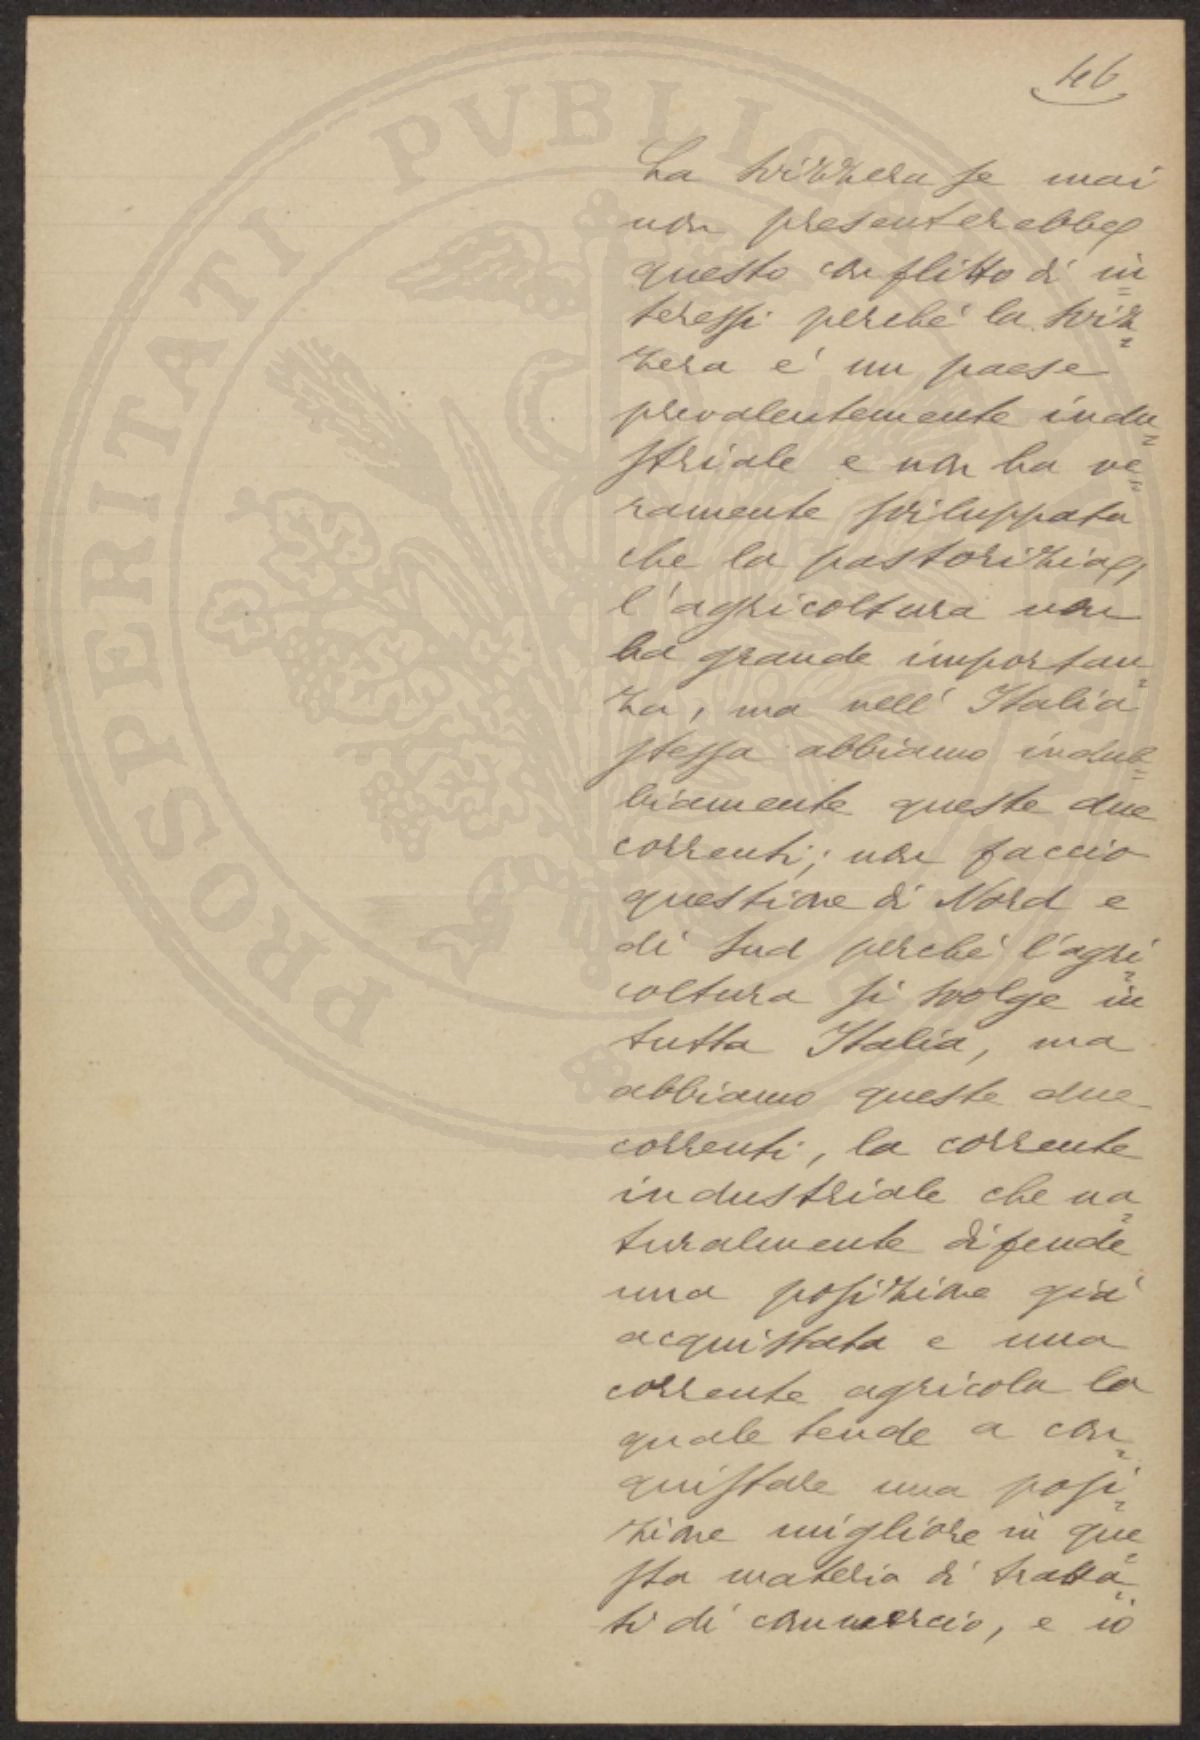 46
La Svizzera se mai
non presenterebbe
questo conflitto di in=
teressi perché la Sviz=
zera é un paese
prevalentemente indu=
striale e non ha ve=
ramente sviluppata
che la pastorizia,
l'agricoltura non
ha grande importan=
za, ma nell'Italia
stessa abbiamo indub=
biamente queste due
correnti; non faccio
questione di Nord e
di Sud perché l'agri=
coltura si svolge in
tutta Italia, ma
abbiamo queste due
correnti, la corrente
industriale che na=
turalmente difende
una posizione giá
acquistata e una
corrente agricola la
quale tende a con=
quistare una posi=
zione migliore in que=
sta materia di tratta=
ti di commercio, e io
PROSPERITATI PVBLICAE